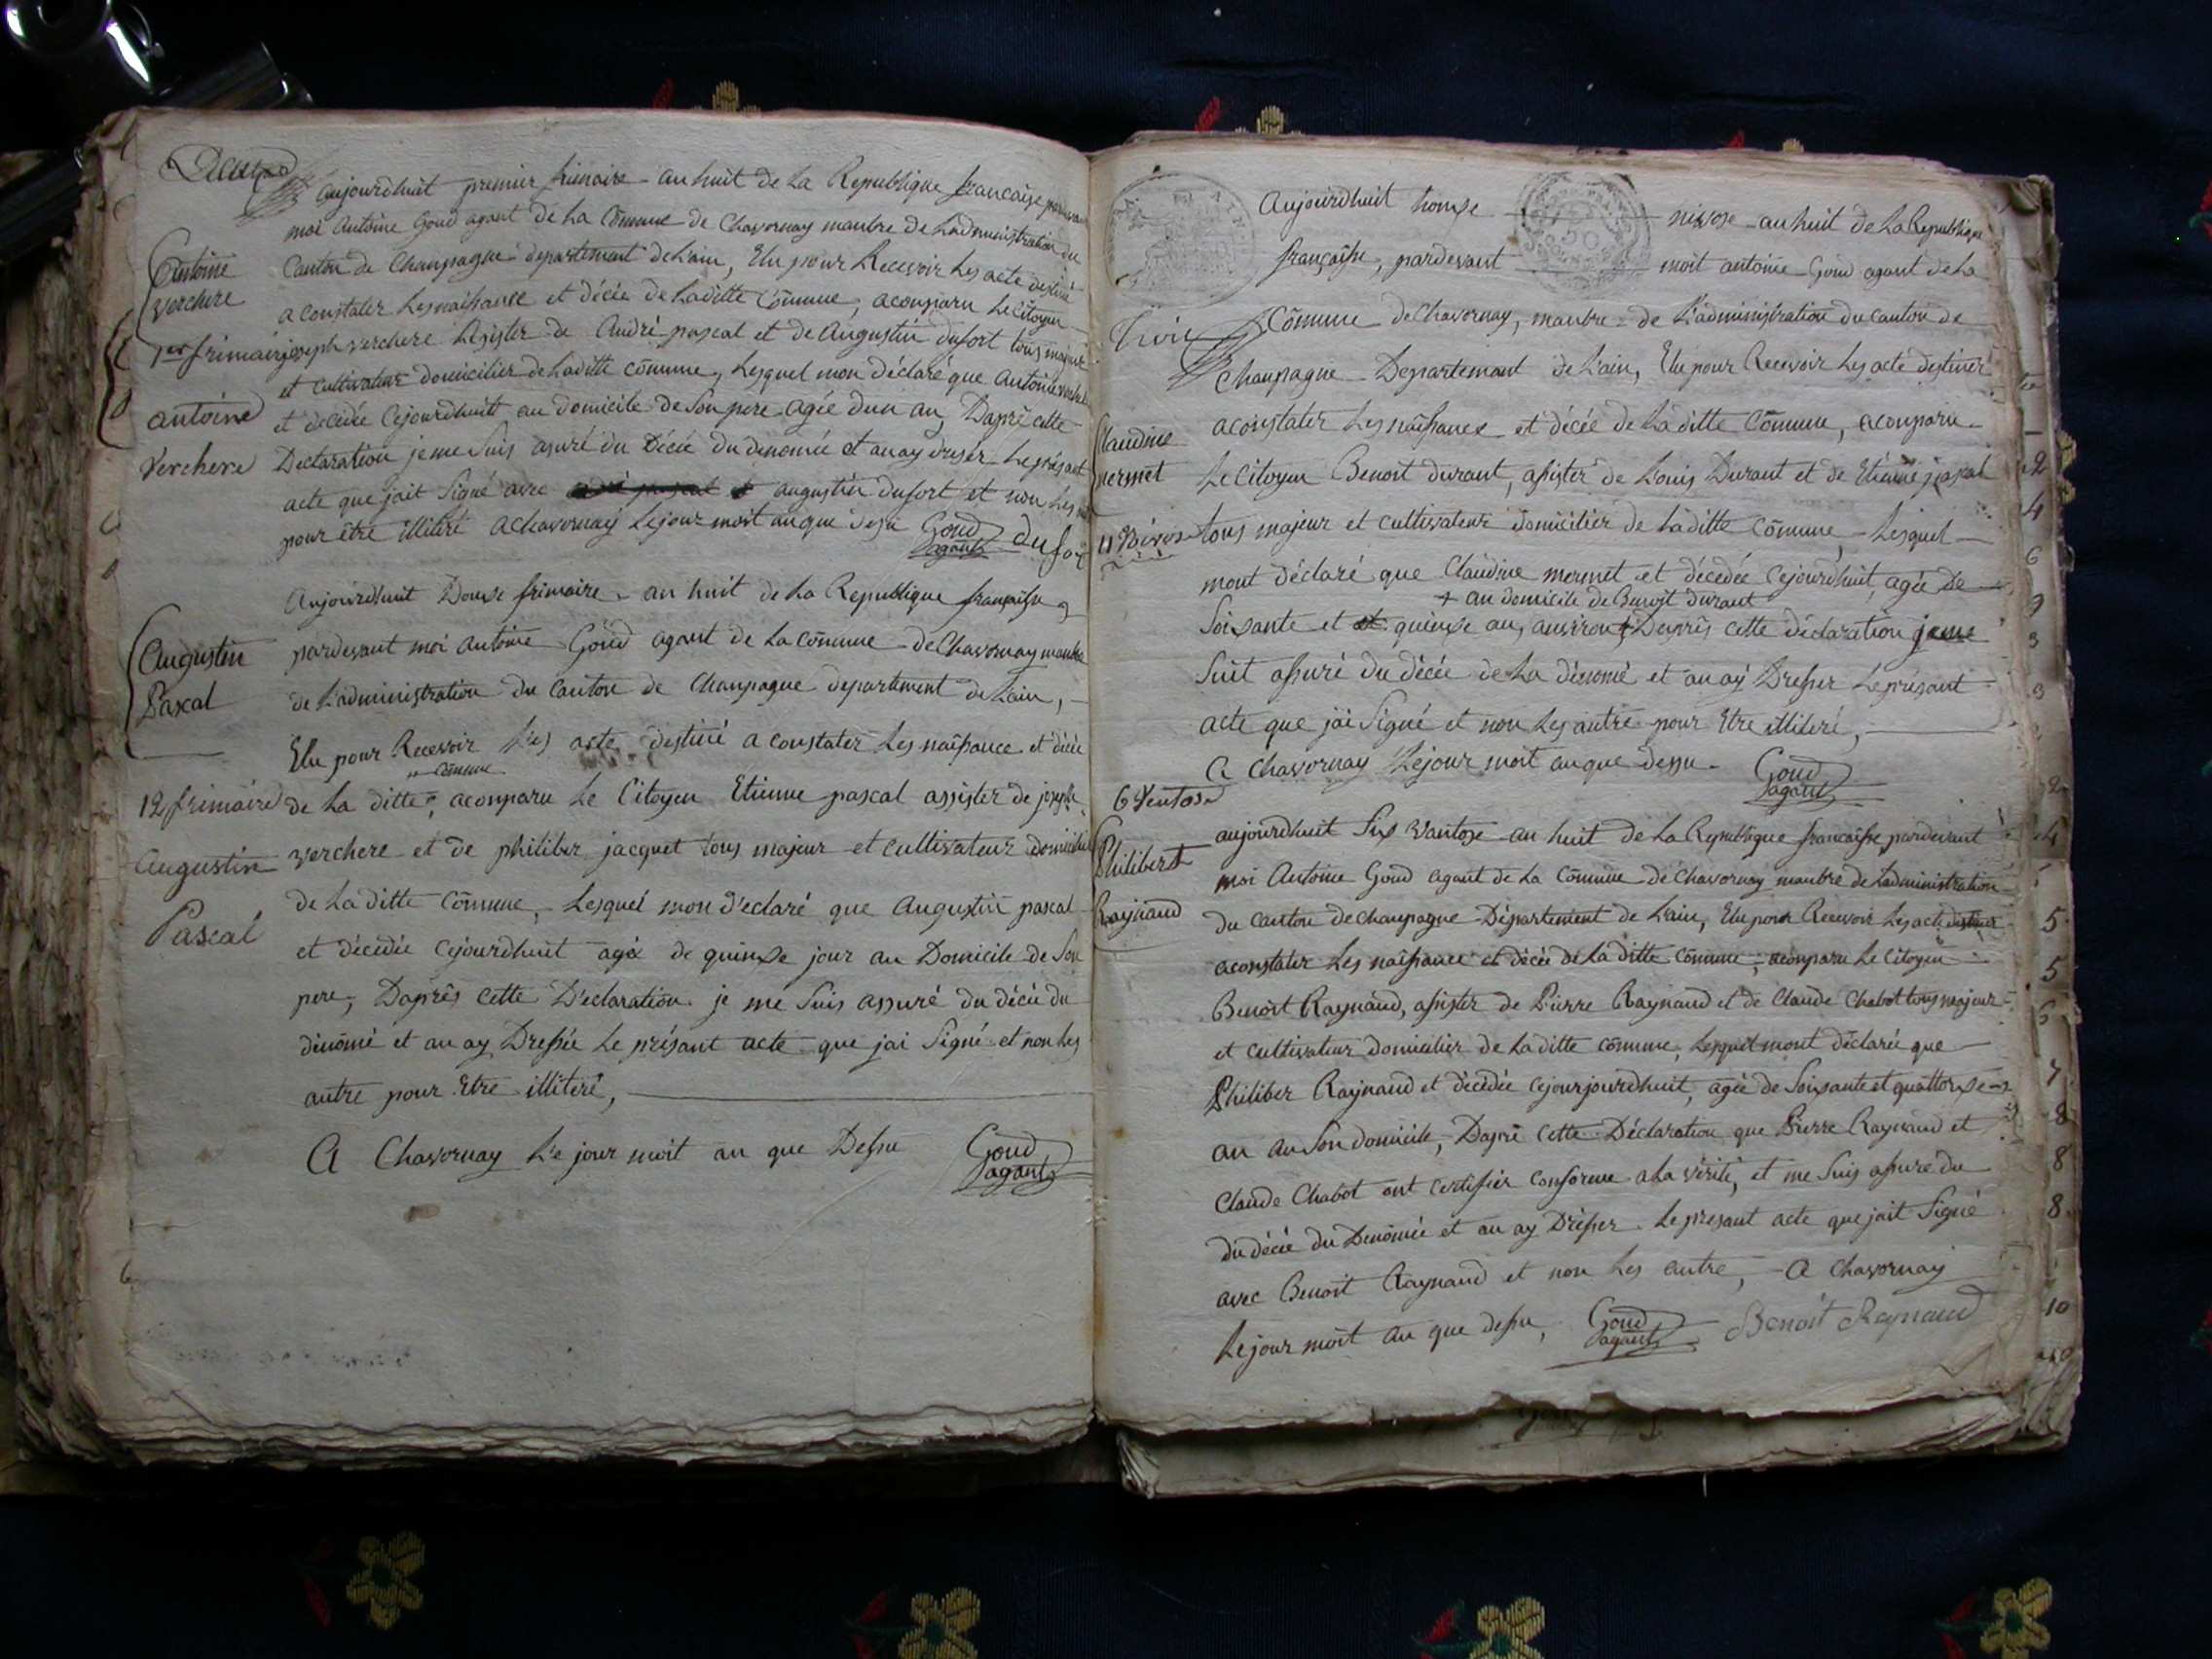 Deux
aujourdhuit premier frimaire an huit de La Republique francaise pardevant
moi Antoine Goud agant de La Cōmune de Chavornay manbre de Ladministration du
Canton de Champagne departement de Lain, Elu pour Recevoir Les acte destiné
a constater Les naissance et décée de Laditte Cōmune, aconparu Le Citoyen
joseph verchere Assister de André pascal et de Augustin dufort tous majeur
et cultivateur domicilier de Laditte cōmune, Lesquel mon déclaré que Antoine verchere
et décédée Cejourdhuit au domicile de Son pere agée dun an, Dapré cette
Declaration je me Suis asuré du Décée du denomée et anay dresér Le présant
acte que jait Signé avec augustin dufort et non Les
pour être illiteré a chavornay Le jour moit an que desu Goud agant dufort
Antoine
Verchere
1er frimaire
antoine
Verchere
Aujourdhuit Douse frimaire an huit de La Republique française
pardevant moi Antoine Goud agant de La cōmune de Chavornay manbre
de L'administration du Canton de Champagne departement de Lain,
Elu pour Recevoir Les acte destiné a constater Les naissance et décée
cōmune
de La ditte, aconparu Le Citoyen Etienne pascal assister de joseph
verchere et de philiber jacquet tous majeur et cultivateur domicilié
de La ditte Cōmune, Lesquel mon déclaré que Augustin pascal
et décédée Cejourdhuit agée de quinse jour au Domicile de Son
pere, Daprés cette Declaration je me Suis assuré du décée du
dénōmé et an ay Dressée Le présant acte que jai Signé et non Les
autre pour Etre illiteré,
A Chavornay Le jour moit an que Dessu Goud agant
Augustin
Pascal
12 frimaire
Augustin
Pascal
Trois
Aujourdhuit honse nivose an huit de La Republique
française, pardevant moit antoine Goud agant de La
Cōmune de Chavornay, manbre de L'administration du canton de
Champagne Departemant de Lain, Elu pour Recevoir Les acte destiner
a constater Les naissance et décée de Laditte Cōmune, aconparu
Le Citoyen Benoit durant, assister de Louis Durant et de Etienne pascal
tous majeur et cultivateur domicilier de Laditte Cōmune, Lesquel
mont déclaré que Claudine mermet et décédée Cejourdhuit, agée de
+ au domicile de Benoit durant
Soisante et quinse an, anviron + Daprés cette déclaration je me
Suit assuré du décée de La dénomé et an ay Dresser Le présant
acte que jai Signé et non Les autre pour Etre illiteré,
A Chavornay Le jour moit anque dessu Goud agant
Claudine
mermet
11 Nivose
6 Ventose
Philibert
Raynaud
aujourdhuit Six vantose an huit de La Republique française pardevant
moi Antoine Goud agant de La Cōmune de Chavornay manbre de Ladministration
du canton de champagne Département de Lain, Elu pour Recevoir Les acte destiner
a constater Les naissance et décée de La ditte cōmune, aconparu Le Citoyen
Benoit Raynaud, assister de Pierre Raynaud et de Claude Chabot tous majeur
et cultivateur domicilier de La ditte cōmune, Lesquel mont déclarée que
Philiber Raynaud et décédée cejourjourdhuit, agée de Soisante et quattorse
an au Son domicile, Dapré cette Déclaration que Pierre Raynaud et
Claude Chabot ont certifier conforme a La vérité, et me Suis assuré du
du décée du Denōmée et an ay Drésser Le presant acte que jait Signé
avec Benoit Raynaud et non Les autre, A Chavornay
Le jour moit an que dessu, Goud agant Benoit Reynaud
2
4
6
9
3
5
5
7
8
8
8
10